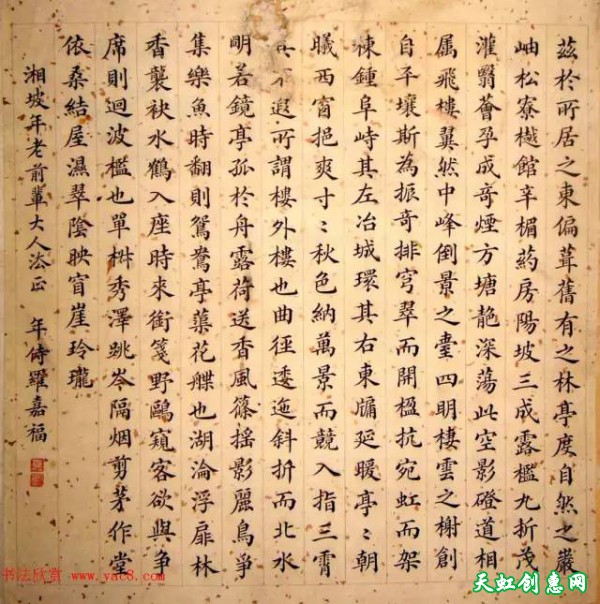 茲於所居之東偏葺舊有之林亭度自然之巖
岫松寮樾館辛楣葯房陽坡三成露檻九折茂
灌翳薈孕成奇煙方塘靘深蕩此空影磴道相
属飛樓翼然中峰倒景之臺四明棲雲之榭創
自平壤斯為振奇排穹翠而開楹抗宛虹而架
棟鍾阜峙其左冶城環其右東牖延暖亭〻朝
曦西窗挹爽寸〻秋色納萬景而競入指三霄
其不遐所謂樓外樓也曲徑逶迤斜折而北水
明若鏡亭孤於舟露荷送香風篠搖影麗鳥爭
集樂魚時翻則鴛鴦亭蕖花艓也湖淪浮扉林
香襲袂水鶴入座時來銜箋野鷗窺客欲與爭
席則迴波檻也單椒秀澤跳岑隔烟剪茅作堂
依桑結屋濕翠陰映窅崖玲瓏
湘坡年老前輩大人法正 年侍羅嘉福
书法欣赏 www.yac8.com
天虹创惠网